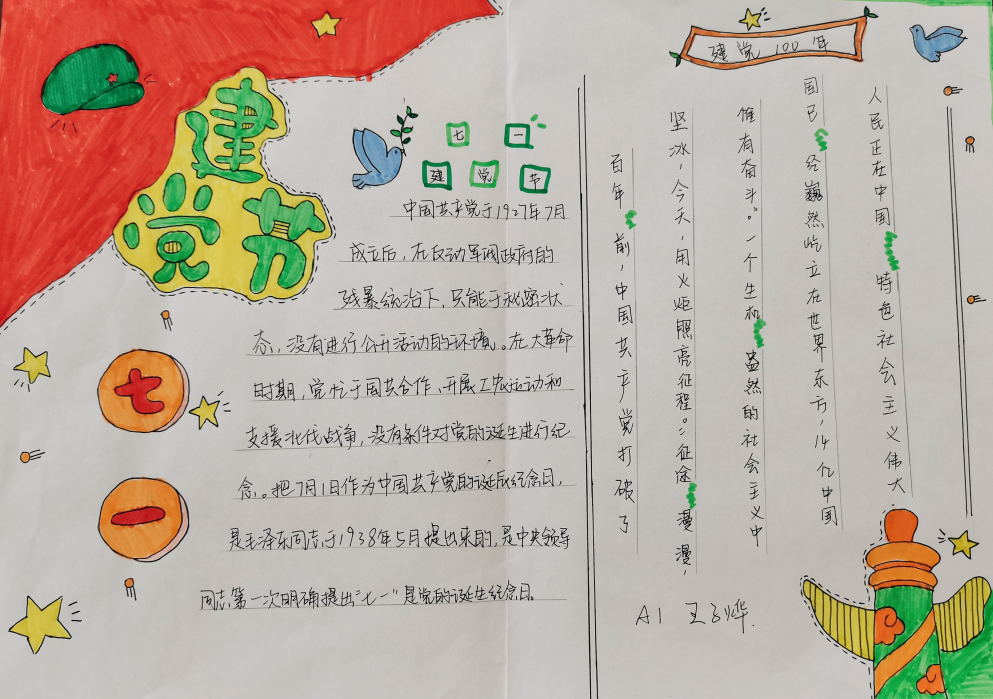 建
党节
七
一
建党100年
七一
建党节
中国共产党于1927年7月
成立后，在反动军阀政府的
残暴统治下，只能于秘密状
态，没有进行公开活动的环境。在大革命
时期，党忙于国共合作、开展工农运动和
支援北伐战争，没有条件对党的诞生进行纪
念。把7月1日作为中国共产党的诞辰纪念日，
是毛泽东同志于1938年5月提出来的，是中央领导
同志第一次明确提出“七一”是党的诞生纪念日
百年前，中国共产党打破了
坚冰，今天，用火炬照亮征程。“征途漫漫，
惟有奋斗。”一个生机盎然的社会主义中
国已经巍然屹立在世界东方，14亿中国
人民正在中国特色社会主义伟大
A1 王子烨